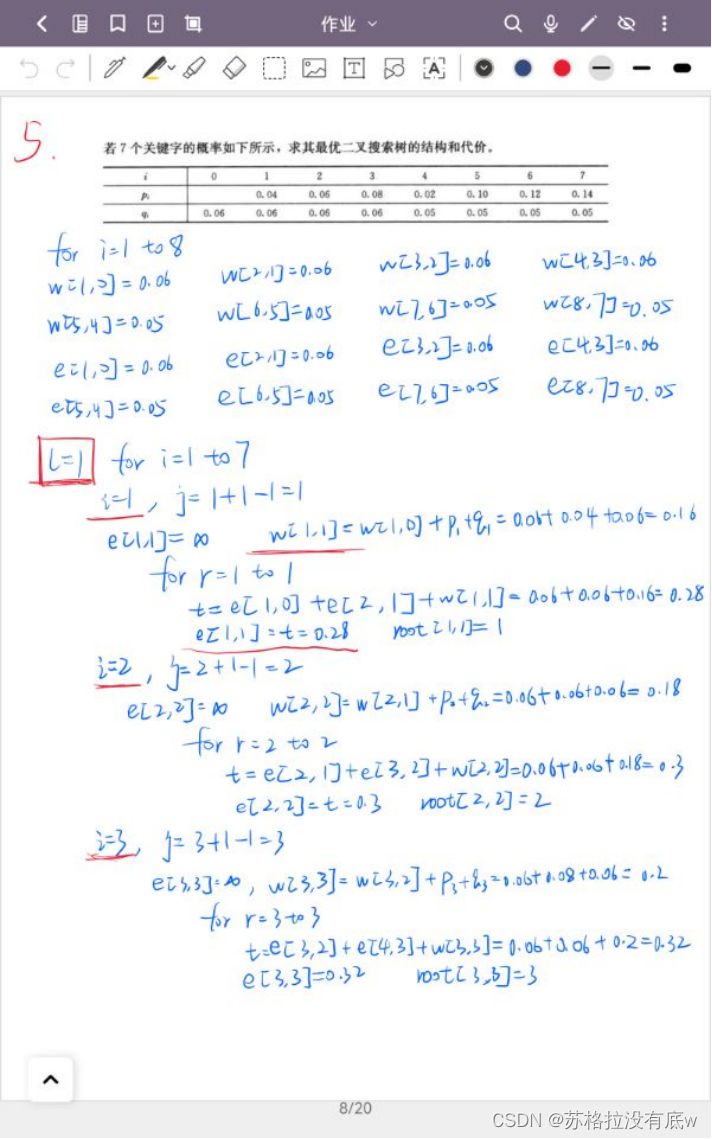 作业
5.
若7个关键字的概率如下所示，求其最优二叉搜索树的结构和代价。
i 0 1 2 3 4 5 6 7
pᵢ 0.04 0.06 0.08 0.02 0.10 0.12 0.14
qᵢ 0.06 0.06 0.06 0.06 0.05 0.05 0.05 0.05
for i=1 to 8
w[1,0]=0.06 w[2,1]=0.06 w[3,2]=0.06 w[4,3]=0.06
w[5,4]=0.05 w[6,5]=0.05 w[7,6]=0.05 w[8,7]=0.05
e[1,0]=0.06 e[2,1]=0.06 e[3,2]=0.06 e[4,3]=0.06
e[5,4]=0.05 e[6,5]=0.05 e[7,6]=0.05 e[8,7]=0.05
l=1 for i=1 to 7
i=1, j=1+1-1=1
e[1,1]=∞ w[1,1]=w[1,0]+p₁+q₁=0.06+0.04+0.06=0.16
for r=1 to 1
t=e[1,0]+e[2,1]+w[1,1]=0.06+0.06+0.16=0.28
e[1,1]=t=0.28 root[1,1]=1
i=2, j=2+1-1=2
e[2,2]=∞ w[2,2]=w[2,1]+p₂+q₂=0.06+0.06+0.06=0.18
for r=2 to 2
t=e[2,1]+e[3,2]+w[2,2]=0.06+0.06+0.18=0.3
e[2,2]=t=0.3 root[2,2]=2
i=3, j=3+1-1=3
e[3,3]=∞, w[3,3]=w[3,2]+p₃+q₃=0.06+0.08+0.06=0.2
for r=3 to 3
t=e[3,2]+e[4,3]+w[3,3]=0.06+0.06+0.2=0.32
e[3,3]=0.32 root[3,3]=3
8/20
CSDN @苏格拉没有底w